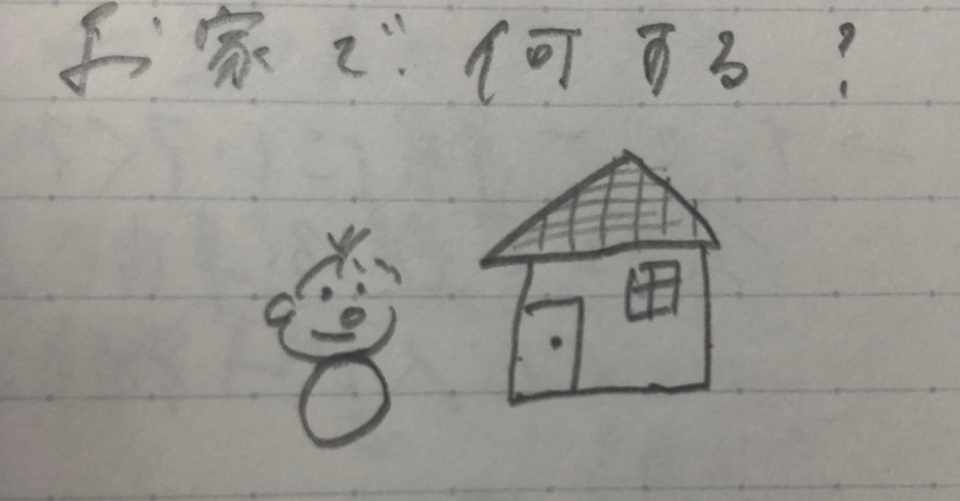 お家で何する?